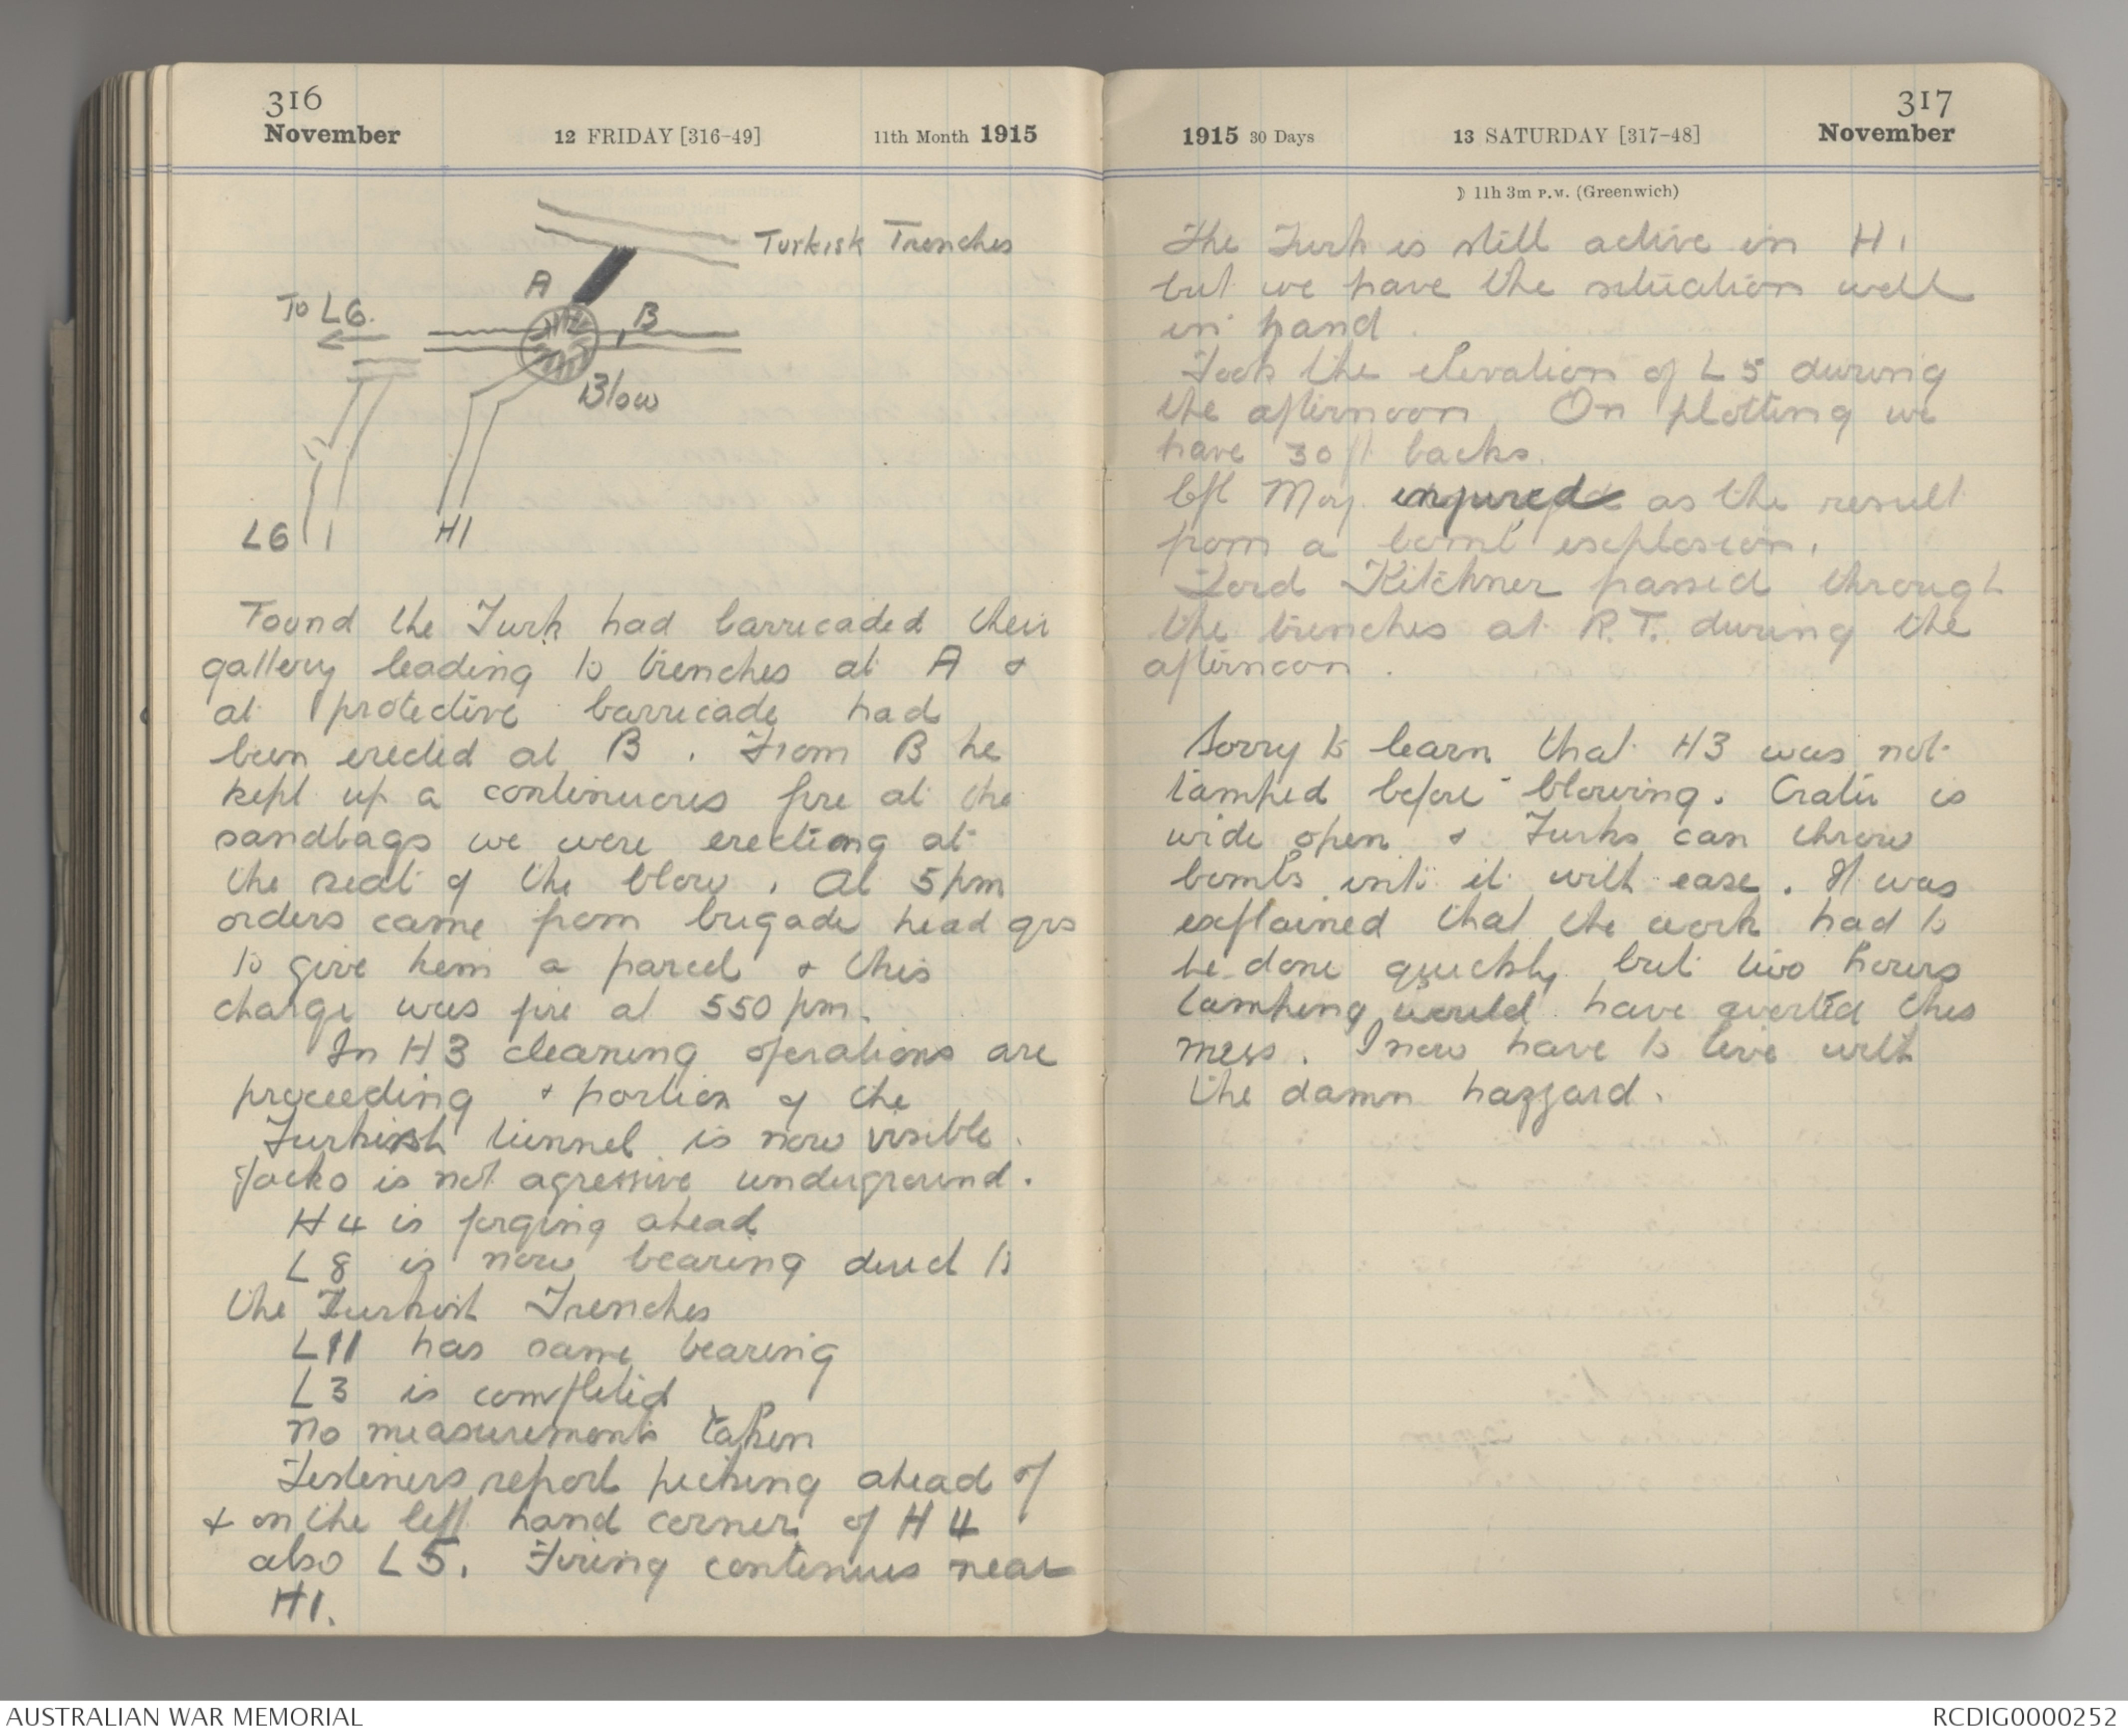 316
November
12 FRIDAY [316-49]
11th Month 1915
Turkish Trenches
A
To L6.
B
Blow
L6
H1
Found the Turk had barricaded their
gallery leading to trenches at A &
at protective barricade had
been erected at B. From B he
kept up a continuous fire at the
sandbags we were erecting at
the seat of the blow. At 5pm
orders came from brigade head qrs
to give him a parcel & this
charge was fire at 550 pm.
In H3 cleaning operations are
proceeding & portion of the
Turkish tunnel is now visible.
Jacko is not agressive underground.
H4 is forging ahead
L8 is now bearing direct to
the Turkish Trenches
L11 has same bearing
L3 is completed
No measurements taken
Listeners report picking ahead of
& on the left hand corner of H4
also L5. Firing continues near
H1.
317
1915 30 Days
13 SATURDAY [317-48]
November
☽ 11h 3m P.M. (Greenwich)
The Turk is still active in H1
but we have the situation well
in hand.
Took the elevation of L5 during
the afternoon. On plotting we
have 30ft backs.
Cpl May. injured as the result
from a bomb explosion.
Lord Kitchner passed through
the trenches at R.T. during the
afternoon.
Sorry to learn that H3 was not
tamped before blowing. Crater is
wide open & Turks can throw
bombs into it with ease. It was
explained that the work had to
be done quickly but two hours
tamping would have averted this
mess. I now have to live with
the damn hazzard.
AUSTRALIAN WAR MEMORIAL
RCDIG0000252